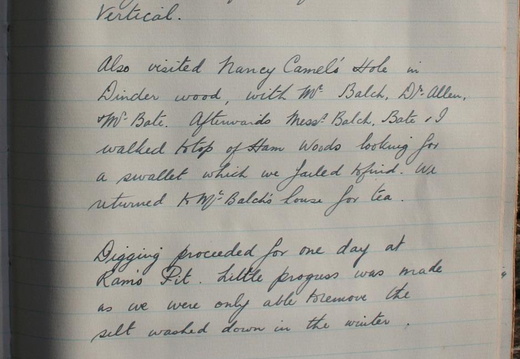 Vertical.
Also visited Nancy Camel's Hole in
Dinder wood, with Mr. Balch, Dr. Allen,
& Mr. Bate. Afterwards Messrs. Balch, Bate & I
walked to top of Ham Woods looking for
a swallet which we failed to find. We
returned to Mr. Balch's house for tea.
Digging proceeded for one day at
Rains Pit. Little progress was made
as we were only able to remove the
silt washed down in the winter.